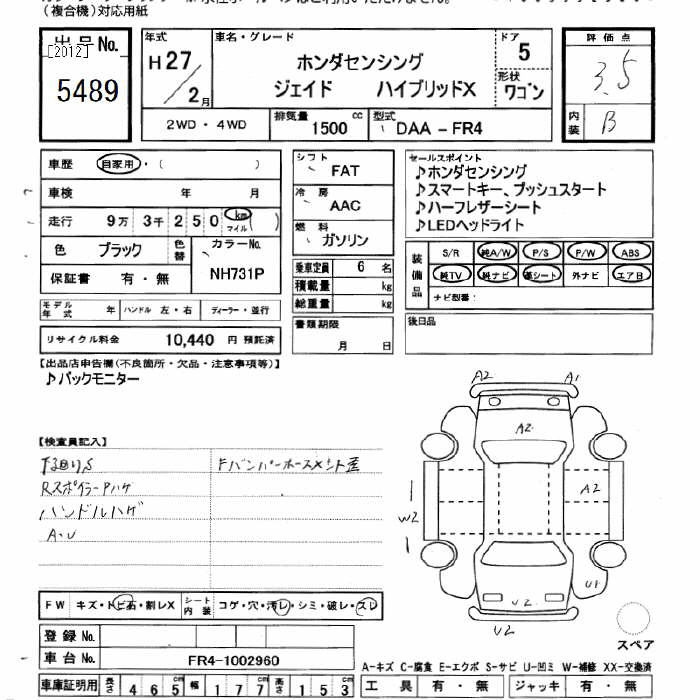 (複合機)対応用紙
出品No.
[2012]
5489
年式
H27/2月
車名・グレード
ホンダセンシング
ジェイド ハイブリッドX
ドア
5
形状
ワゴン
評価点
3.5
内装
B
2WD・4WD
排気量
1500 cc
型式
DAA-FR4
車歴 自家用・( )
車検 年 月
走行 9万 3千 2 5 0 km マイル ( )
色 ブラック 色替 カラーNo. NH731P
保証書 有・無
モデル年式 年 ハンドル 左・右 ディーラー・並行
リサイクル料金 10,440 円 預託済
シフト
FAT
冷房
AAC
燃料
ガソリン
乗車定員 6 名
積載量 kg
総重量 kg
書類期限
月 日
セールスポイント
♪ホンダセンシング
♪スマートキー、プッシュスタート
♪ハーフレザーシート
♪LEDヘッドライト
装備品
S/R 純A/W P/S P/W ABS
純TV 純ナビ 革シート 外ナビ エアB
ナビ型番:
後日品
【出品店申告欄(不良箇所・欠品・注意事項等)】
♪バックモニター
【検査員記入】
下回りS
Rスポイラーハゲ
ハンドルハゲ
A・U
A2
A1
A2
A2
W2
U1
U2
U2
スペア
FW キズ・トビ石・割レX シート内装 コゲ・穴・汚レ・シミ・破レ・スレ
登録No.
車台No. FR4-1002960
A-キズ C-腐食 E-エクボ S-サビ U-凹ミ W-補修 XX-交換済
車庫証明用 長さ 465 cm 幅 177 cm 高さ 153 cm
工具 有・無 ジャッキ 有・無